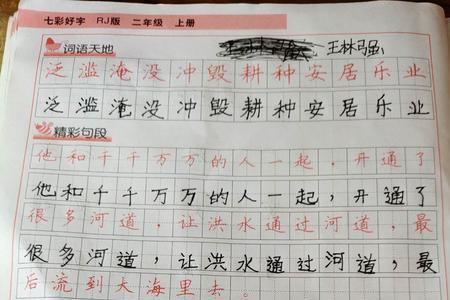 七彩好字 RJ版 二年级 上册
词语天地 王林强
泛滥淹没冲毁耕种安居乐业
泛滥淹没冲毁耕种安居乐业
精彩句段
他和千千万万的人一起，开通了
他和千千万万的人一起，开通了
很多河道，让洪水通过河道，最
很多河道，让洪水通过河道，最
后流到大海里去。